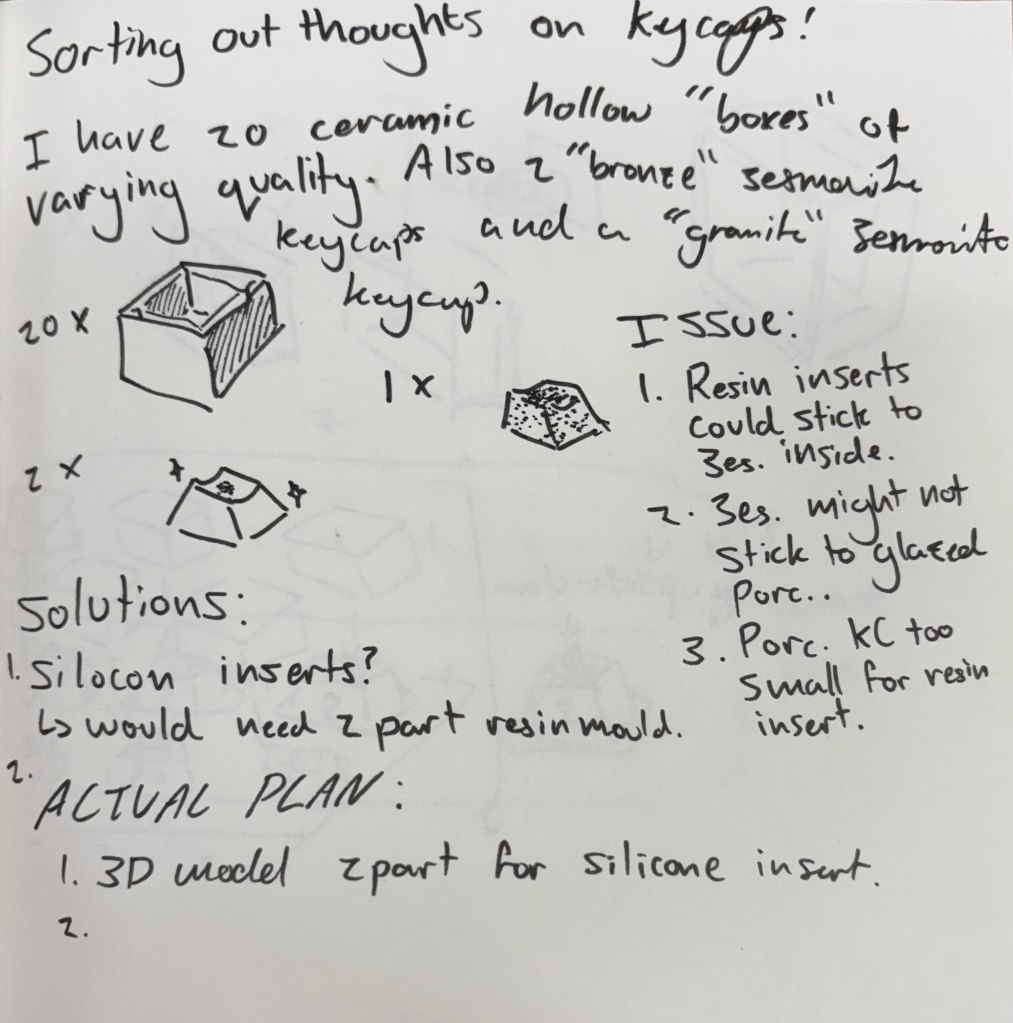 Sorting out thoughts on keycaps!
I have 20 ceramic hollow "boxes" of
varying quality. Also 2 "bronze" Jesmonite
keycaps and a "granite" Jesmonite
keycap.
20 x
1 x
2 x
Issue:
1. Resin inserts
could stick to
Jes. inside.
2. Jes. might not
stick to glazed
Porc..
3. Porc. KC too
small for resin
insert.
Solutions:
1. Silocon inserts?
↳ would need 2 part resin mould.
2.
ACTUAL PLAN:
1. 3D model 2 part for silicone insert.
2.